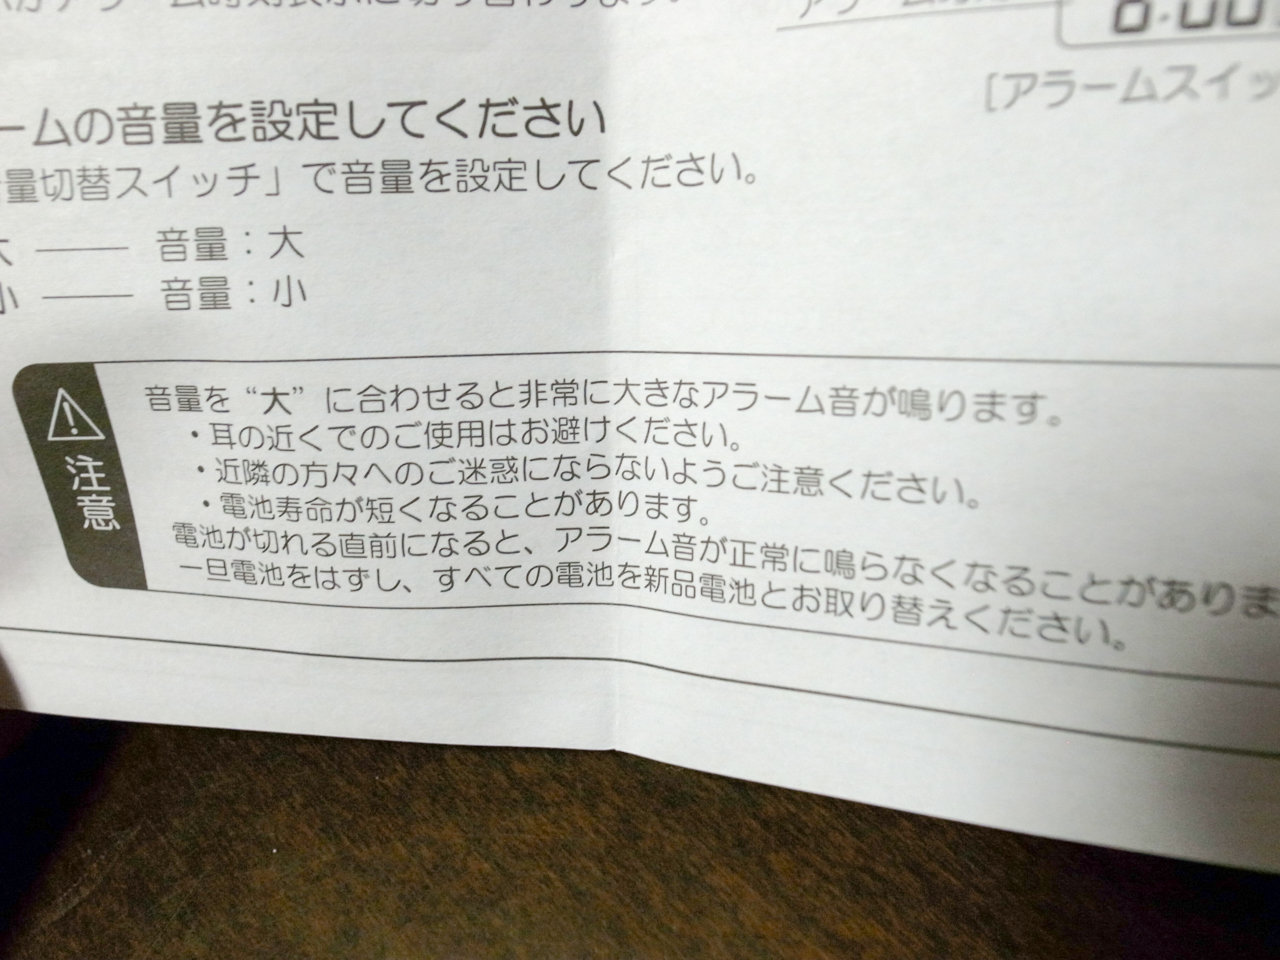 アラーム時刻表示に切り替わります。
[アラームスイッ
ームの音量を設定してください
量切替スイッチ」で音量を設定してください。
大 —— 音量：大
小 —— 音量：小
注意
音量を“大”に合わせると非常に大きなアラーム音が鳴ります。
・耳の近くでのご使用はお避けください。
・近隣の方々へのご迷惑にならないようご注意ください。
・電池寿命が短くなることがあります。
電池が切れる直前になると、アラーム音が正常に鳴らなくなることがありま
一旦電池をはずし、すべての電池を新品電池とお取り替えください。